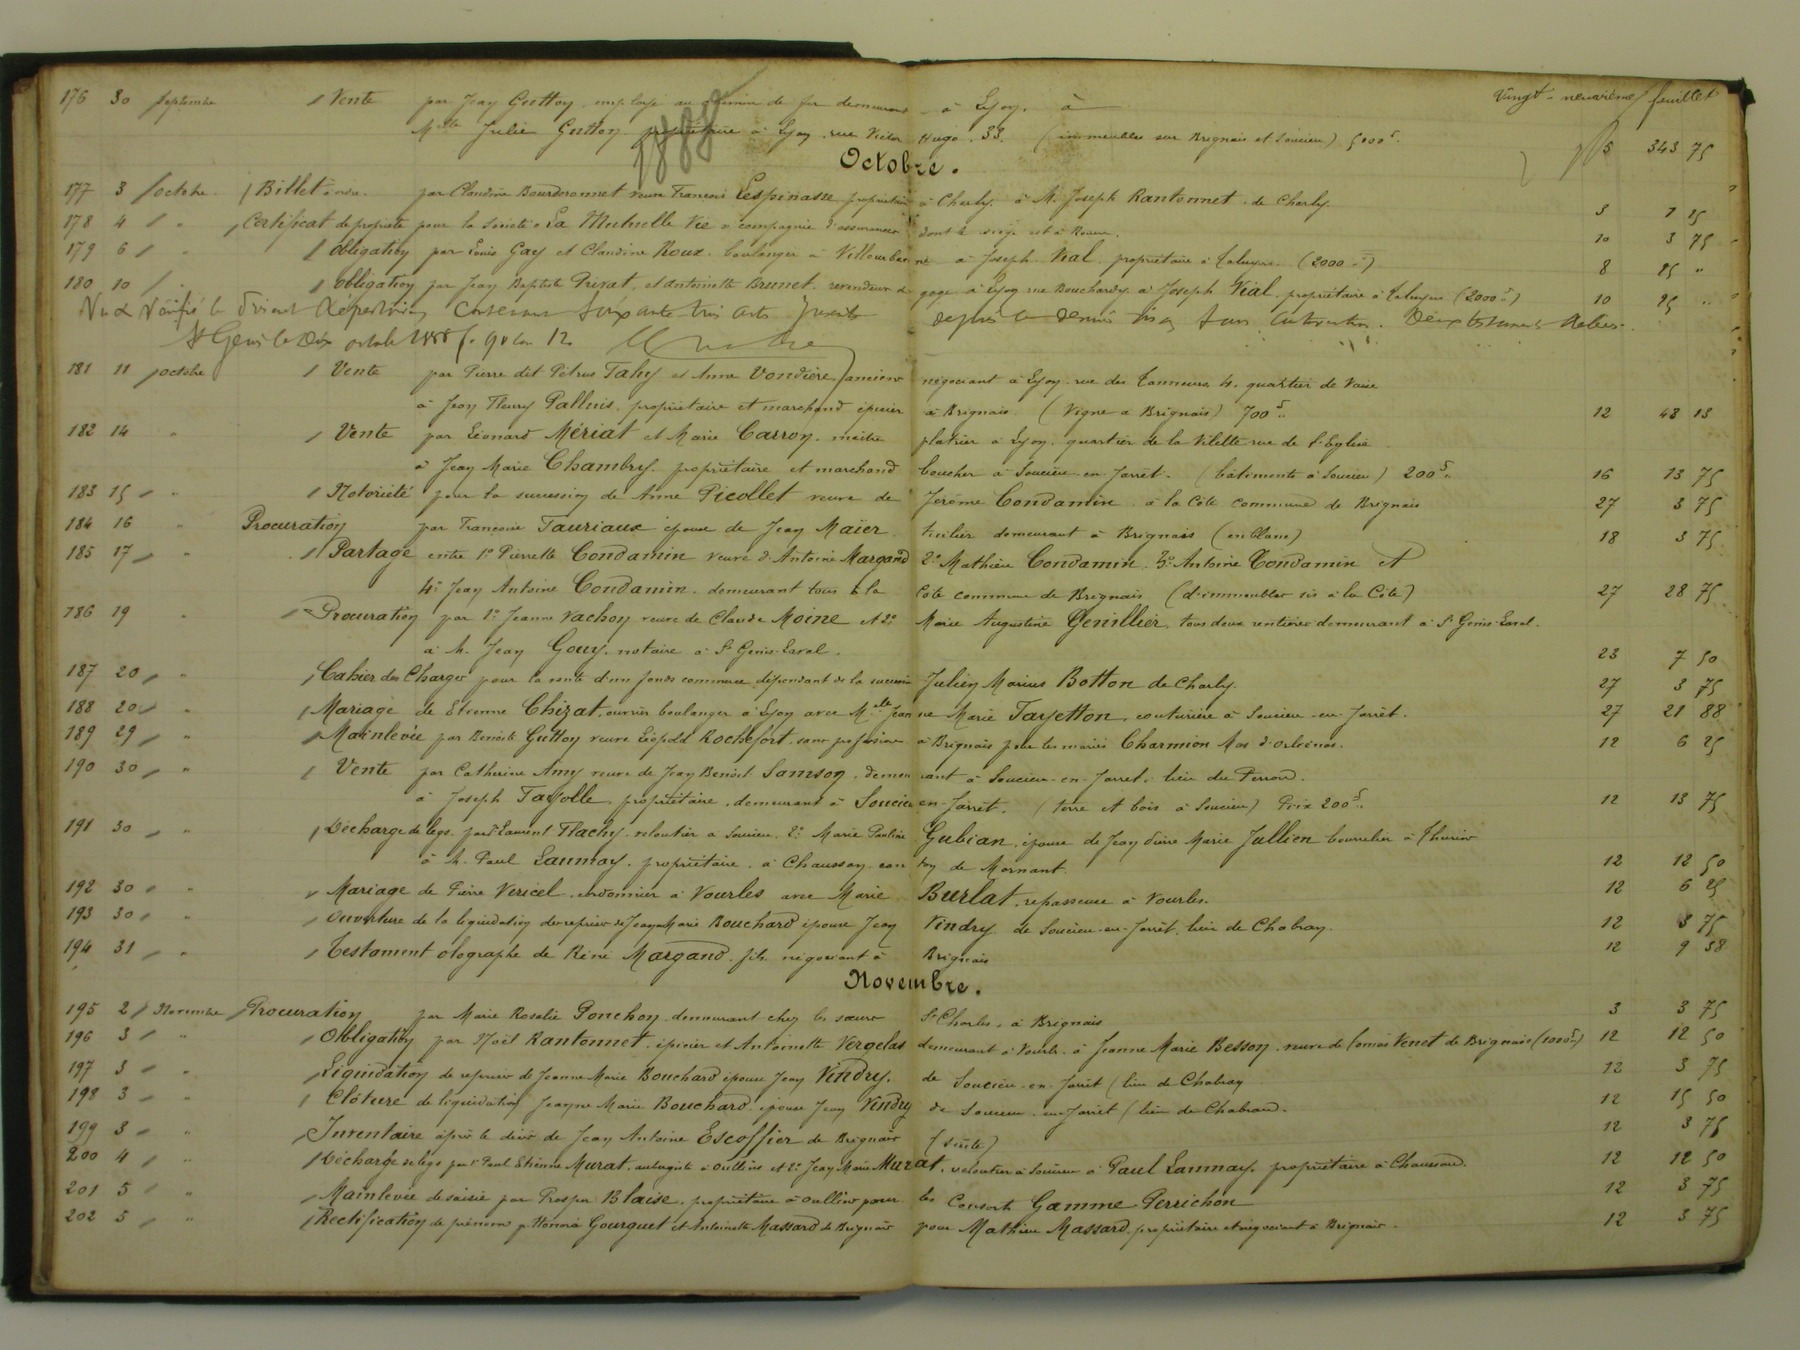 Vingt-neuvième feuillet
176 30 Septembre Vente par Jean Gutton, employé au chemin de fer demeurant à Lyon, à
Mlle Julie Gutton propriétaire à Lyon, rue Victor Hugo, 33. (immeubles sur Brignais et Soucieu) 5000f. 5 343 75
1888
Octobre.
177 3 octobre Billet à ordre par Claudine Bourdoronnet veuve François Lespinasse propriétaire à Charly à M. Joseph Rantonnet de Charly. 3 7 15
178 4 " Certificat de propriété pour la Société "La Mutuelle Vie" compagnie d'assurances dont le siège est à Rouen. 10 3 75
179 6 " Obligation par Louis Gay et Claudine Roux, boulanger à Villeurbanne à Joseph Vial, propriétaire à Caluyre (2000f) 8 25 "
180 10 " Obligation par Jean Baptiste Privat, et Antoinette Brunet, revendeur de gage à Lyon rue Bouchardy à Joseph Vial, propriétaire à Caluyre (2000f) 10 25 "
Vu & Vérifié le présent Répertoire Contenant Soixante trois actes Inscrits depuis le dernier visa sans Contravention. Deux testaments
St Genis le Dix octobre 1888 f. 90 c. 12.
181 11 octobre Vente par Pierre dit Pétrus Tahy et Anne Vondière, ancien négociant à Lyon, rue des Tanneurs 4, quartier de Vaise
à Jean Fleury Palluis, propriétaire et marchand épicier à Brignais (Vigne à Brignais) 700f. 12 48 13
182 14 " Vente par Léonard Mériat et Marie Carron, maître plâtrier à Lyon, quartier de la Vilette rue de l'Eglise
à Jean Marie Chambry, propriétaire et marchand boucher à Soucieu-en-Jarrêt. (bâtiments à Soucieu) 200f. 16 13 75
183 15 " Notoriété pour la succession de Anne Picollet veuve de Jérôme Condamin, à la Côte commune de Brignais 27 3 75
184 16 " Procuration par Françoise Tauriaux épouse de Jean Maier tuilier demeurant à Brignais (en blanc) 18 3 75
185 17 " Partage entre 1° Pierrette Condamin veuve d'Antoine Margand 2° Mathieu Condamin 3° Antoine Condamin et
4° Jean Antoine Condamin, demeurant tous à la Côte commune de Brignais (d'immeubles sis à la Côte) 27 28 75
186 19 " Procuration par 1° Jeanne Vachon veuve de Claude Moine et 2° Marie Augustine Genillier, tous deux rentières demeurant à St Genis-Laval.
à M. Jean Gouy, notaire à St Genis-Laval. 23 7 50
187 20 " Cahier des Charges pour la vente d'un fonds commerce dépendant de la succession Julien Marius Botton de Charly. 27 3 75
188 20 " Mariage de Etienne Chizat, ouvrier boulanger à Lyon avec Mlle Jeanne Marie Fayetton, couturière à Soucieu-en-Jarrêt. 27 21 88
189 29 " Mainlevée par Benoite Gutton veuve Léopold Rochefort, sans profession à Brignais pour les mariés Charmion Mas d'Orliénas. 12 6 25
190 30 " Vente par Catherine Amy veuve de Jean Benoit Samson, demeurant à Soucieu-en-Jarret, lieu du Perron.
à Joseph Fayolle, propriétaire, demeurant à Soucieu en-Jarrêt. (terre et bois à Soucieu) Prix 200f. 12 13 75
191 30 " Décharge de legs par 1° Laurent Flachy, veloutier à Soucieu, 2° Marie Pauline Gubian, épouse de Jean Marie Jullien bourrelier à Thurins
à M. Paul Launay, propriétaire, à Chaussan canton de Mornant. 12 12 50
192 30 " Mariage de Pierre Vericel, cordonnier à Vourles avec Marie Burlat, repasseuse à Vourles. 12 6 25
193 30 " Ouverture de la liquidation des reprises de Jeanne Marie Bouchard épouse Jean Vindry de Soucieu-en-Jarrêt, lieu de Chabray. 12 3 75
194 31 " Testament olographe de Réné Margand, fils négociant à Brignais 12 9 38
Novembre.
195 2 Novembre Procuration par Marie Rosalie Ponchon demeurant chez les sœurs St Charles, à Brignais 3 3 75
196 3 " Obligation par Noël Rantonnet, épicier et Antoinette Vergelas demeurant à Vourles à Jeanne Marie Besson, veuve de Comas Venet de Brignais (1000f) 12 12 50
197 3 " Liquidation de reprises de Jeanne Marie Bouchard épouse Jean Vindry, de Soucieu-en-Jarrêt (lieu de Chabray 12 3 75
198 3 " Clôture de liquidation Jeanne Marie Bouchard épouse Jean Vindry de Soucieu-en-Jarrêt (lieu de Chabrau. 12 15 50
199 3 " Inventaire après le décès de Jean Antoine Escoffier de Brignais (suite) 12 3 75
200 4 " Décharge de legs par 1° Paul Etienne Murat, aubergiste à Oullins et 2° Jean Marie Murat, veloutier à Soucieu à Paul Launay, propriétaire à Chaussan. 12 12 50
201 5 " Mainlevée de saisie par Prosper Blaise, propriétaire à Oullins pour les Consorts Gamme Perrichon 12 3 75
202 5 " Rectification de prénoms p. Honoré Gourguet et Antoinette Massard de Brignais pour Mathieu Massard, propriétaire et négociant à Brignais. 12 3 75